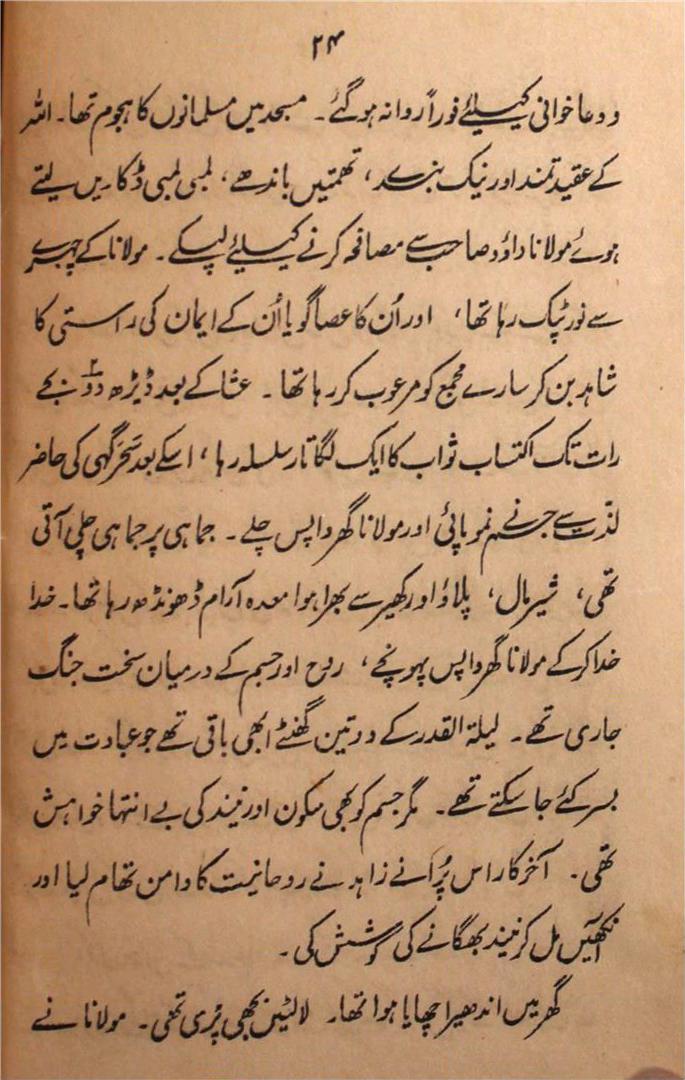 ۲۴
و دعا خوانی کیلئے فوراً روانہ ہو گئے۔ مسجد میں مسلمانوں کا ہجوم تھا۔ اللہ
کے عقیدتمند اور نیک بندے، تھمتیں باندھے، لمبی لمبی ڈکاریں لیتے
ہوئے مولانا داؤد صاحب سے مصافحہ کرنے کیلئے لپکے۔ مولانا کے چہرے
سے نور ٹپک رہا تھا، اور اُن کا عصا گویا اُن کے ایمان کی راستی کا
شاہد بن کر سارے مجمع کو مرعوب کر رہا تھا۔ عشا کے بعد ڈیڑھ دو بجے
رات تک اکتساب ثواب کا ایک لگاتار سلسلہ رہا، اسکے بعد سَحَر گہی کی حاضر
لذت سے جسم نے نمو پائی اور مولانا گھر واپس چلے۔ جماہی پر جماہی چلی آتی
تھی، شیرمال، پلاؤ اور کھیر سے بھرا ہوا معدہ آرام ڈھونڈھ رہا تھا۔ خدا
خدا کر کے مولانا گھر واپس پہونچے، روح اور جسم کے درمیان سخت جنگ
جاری تھے۔ لیلۃ القدر کے دو تین گھنٹے ابھی باقی تھے جو عبادت میں
بسر کئے جا سکتے تھے۔ مگر جسم کو بھی سکون اور نیند کی بے انتہا خواہش
تھی۔ آخر کار اس پُرانے زاہد نے روحانیت کا دامن تھام لیا اور
آنکھیں مل کر نیند بھگانے کی کوشش کی۔
گھر میں اندھیرا چھایا ہوا تھا۔ لالٹین بجھی پڑی تھی۔ مولانا نے